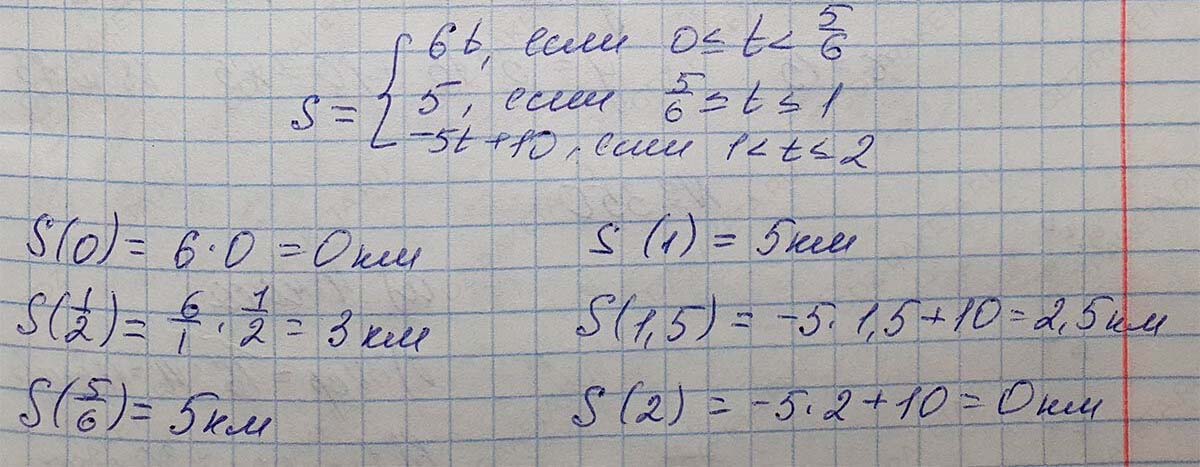 S = { 6t, если 0 ≤ t < 5/6
5, если 5/6 ≤ t ≤ 1
-5t+10, если 1 < t ≤ 2
S(0) = 6·0 = 0 км
S(1/2) = 6/1 · 1/2 = 3 км
S(5/6) = 5 км
S(1) = 5 км
S(1,5) = -5·1,5+10 = 2,5 км
S(2) = -5·2+10 = 0 км